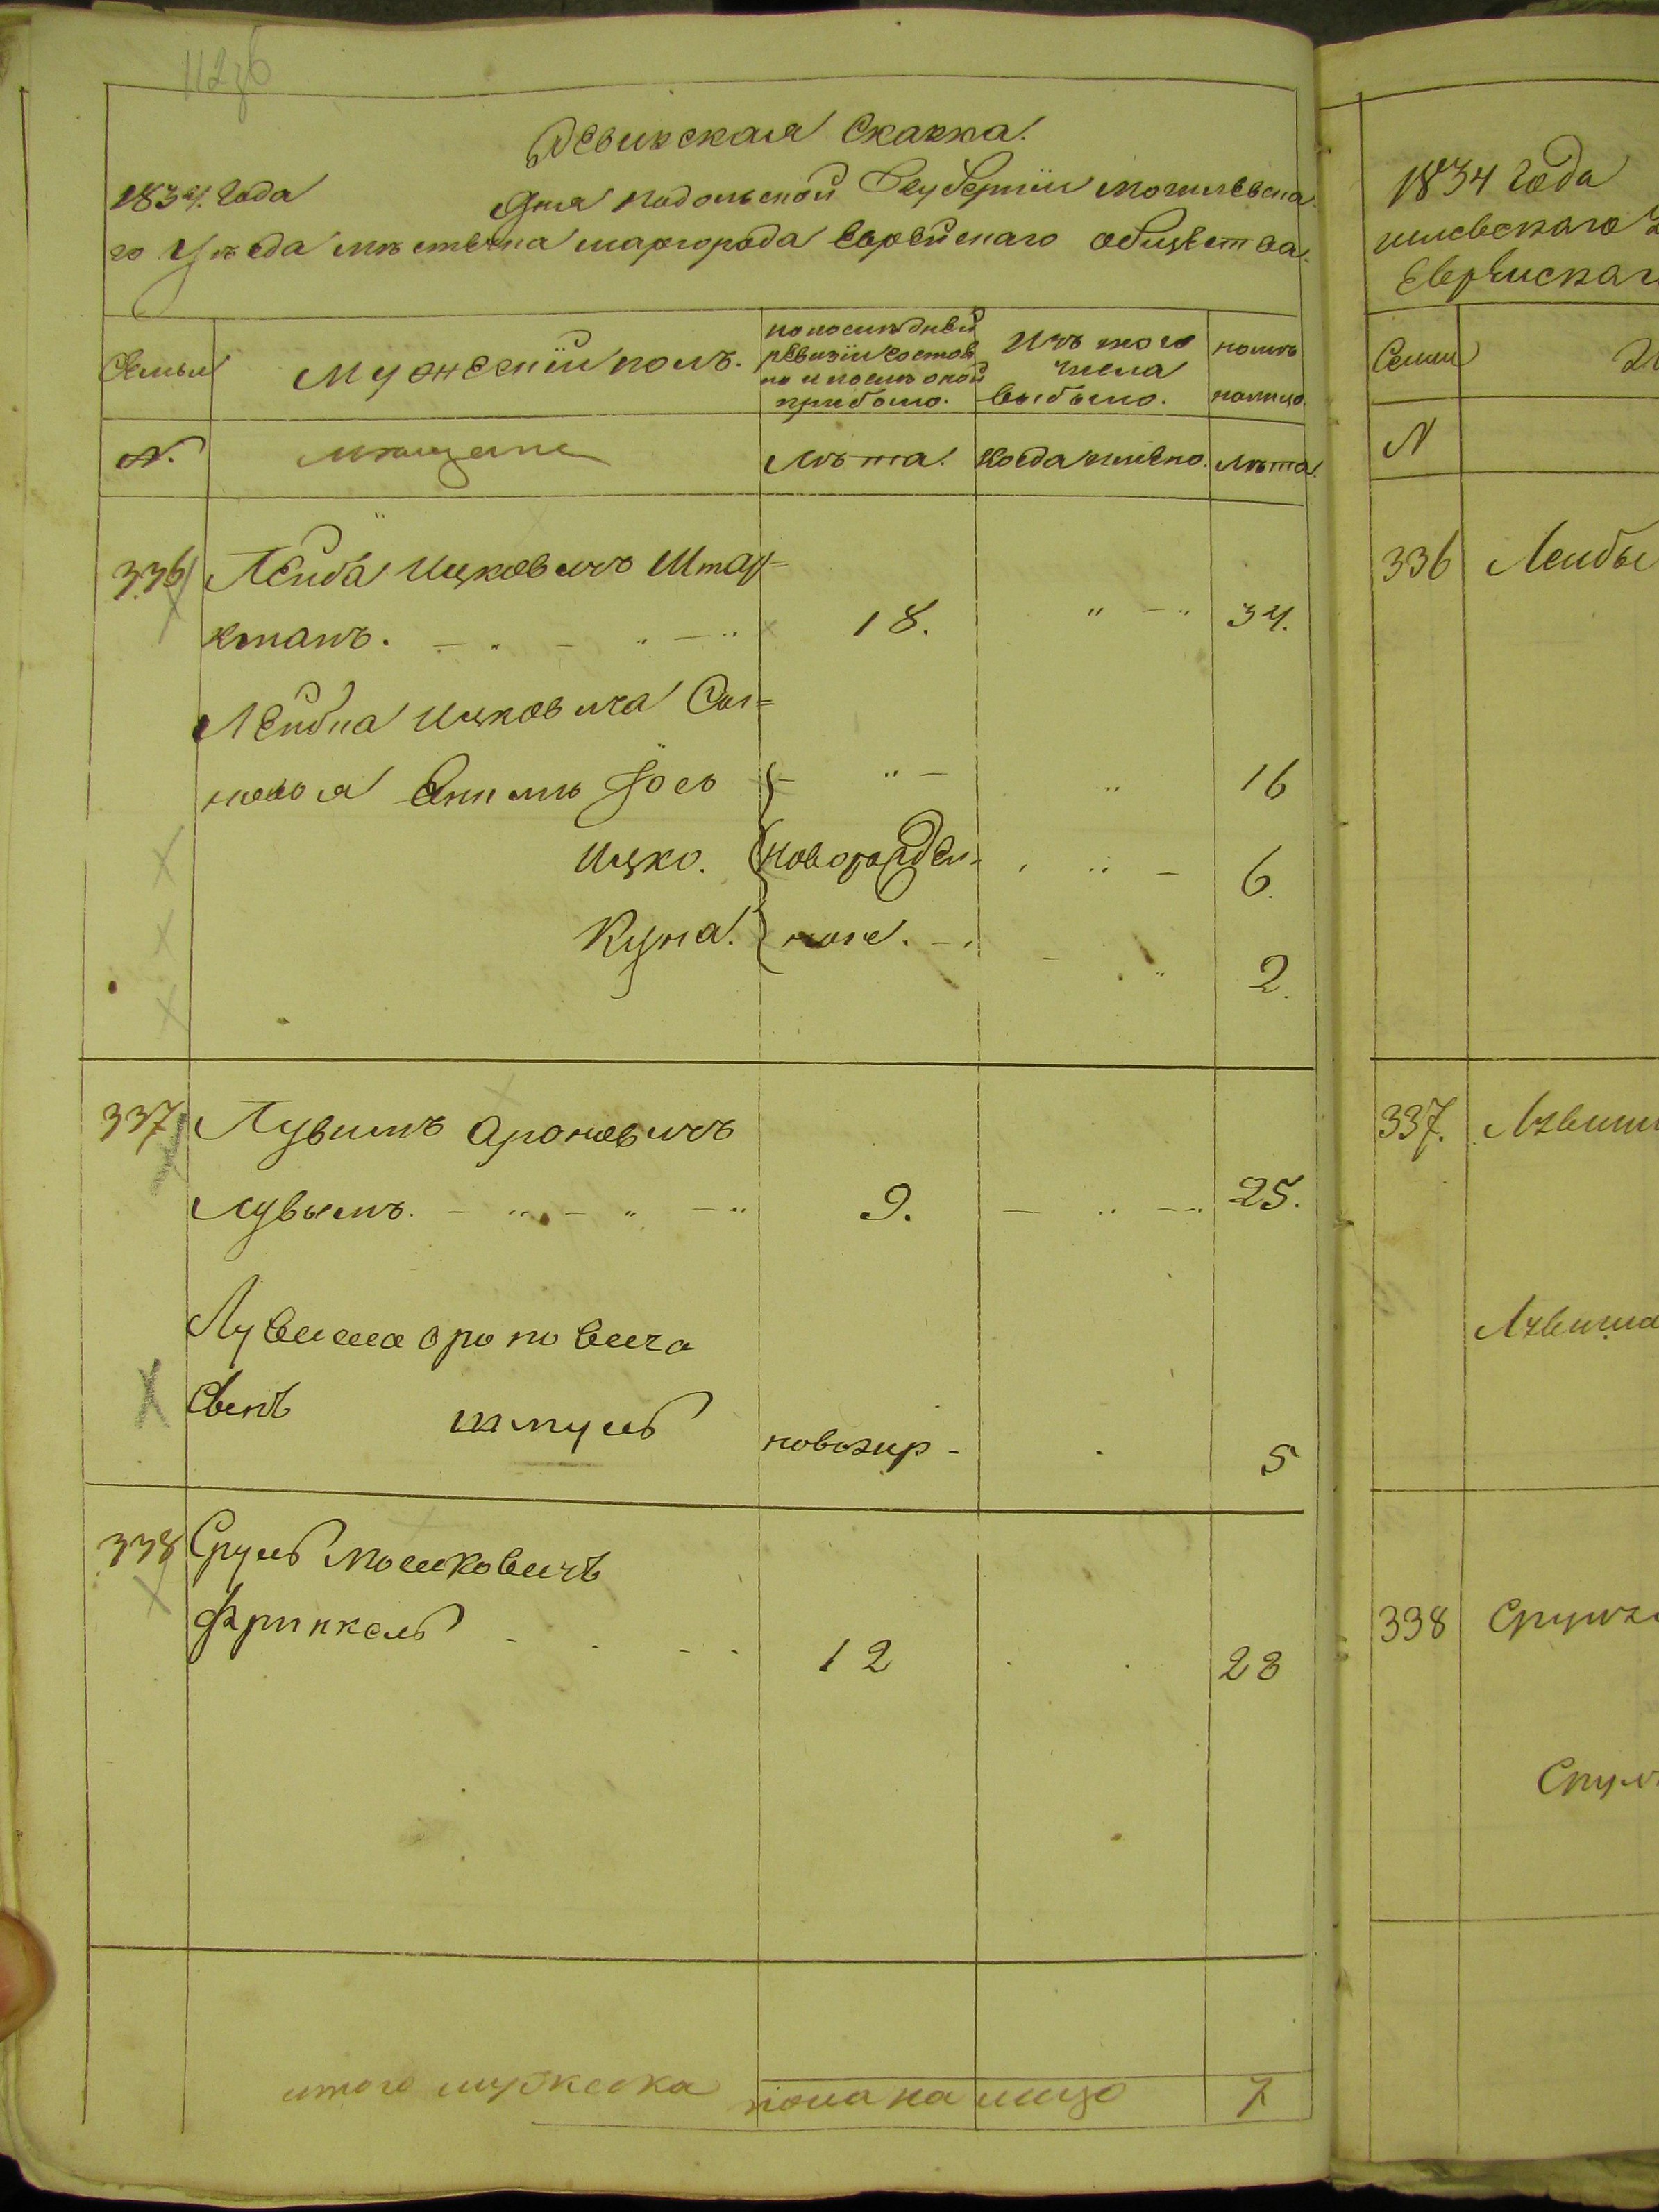 112 об
Ревизская Сказка.
1834. Года Дня Подольской Губернии Могилевска
го Уѣзда мѣстечка шаргорода Еврейскаго общества.
Семьи
Мужескій полъ.
по последней
ревизіи состоя
ло и после оной
прибыло.
Изъ того
числа
выбыло.
нынѣ
налицо.
N.
мещане
Лѣта.
Когда имено.
Лѣта.
336
Лейба Ицковичъ Штар=
кманъ. 18. 34.
Лейбы Ицковича Сы=
новья 16
Ицко. новорожден- 6.
Куна. ные. 2.
337
Лузимъ Ароновичъ
9. 25.
Ароновича
Сынъ шмуль новозир- 5
338
Сруль Мошковичъ
Фринкель 12 28
итого мужеска пола на лицо 7
1834 Года
гилевскаго У
Еврейскаг
Семьи
N
336 Лейбы
337.
338